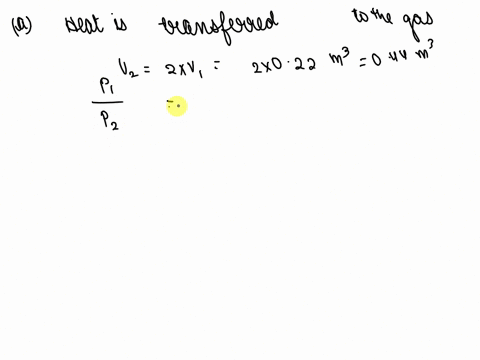 (a) Heat is transferred to the gas
V₂ = 2×V₁ = 2×0.22 m³ = 0.44 m³
P₁/P₂ =